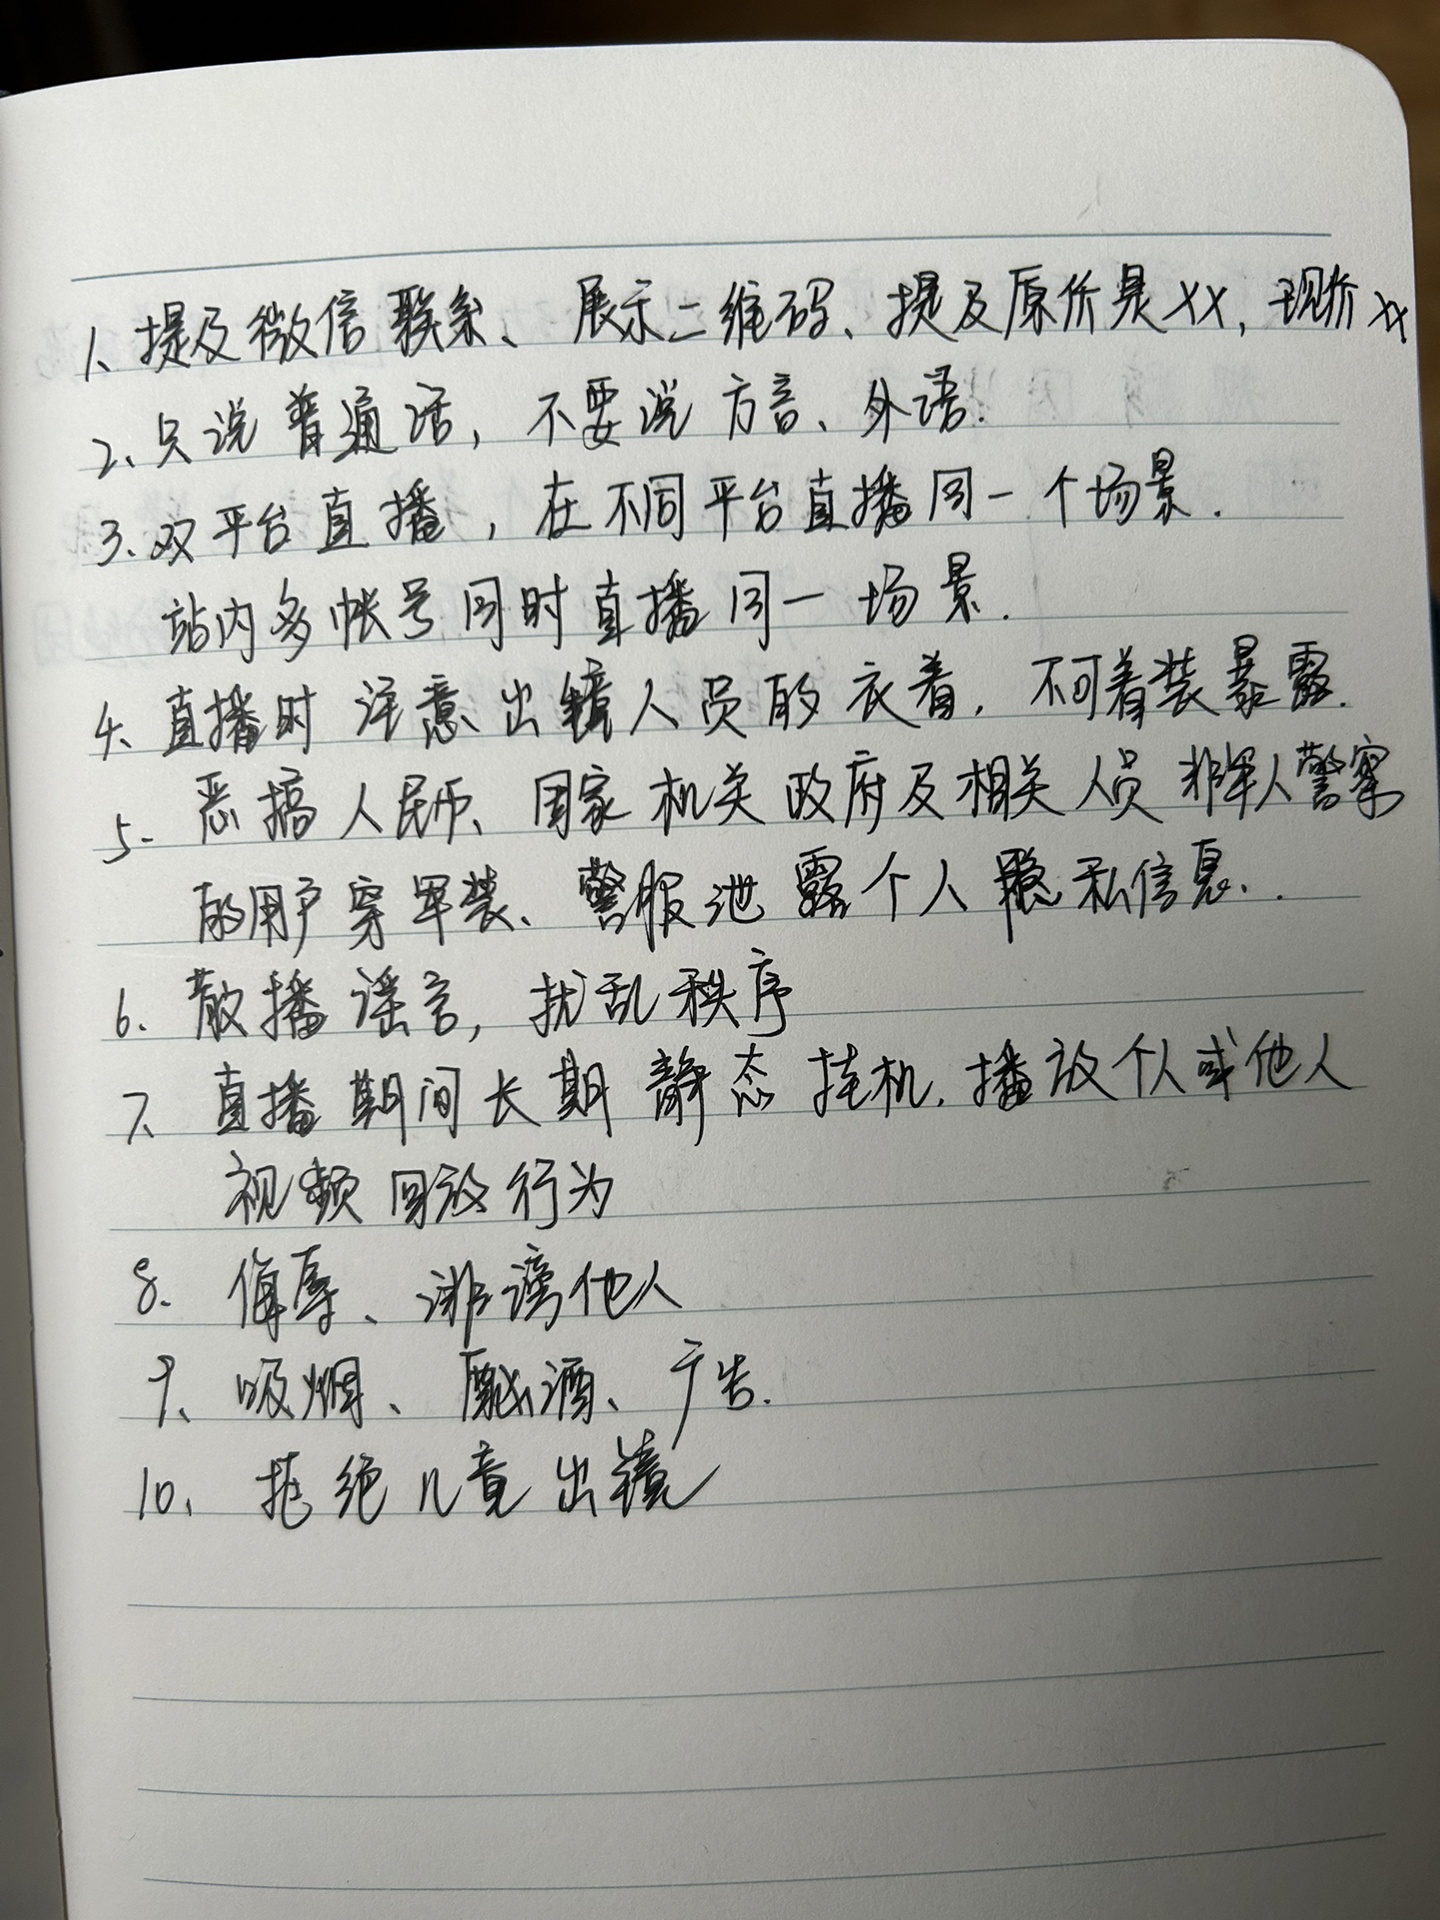 1、提及微信联系、展示二维码、提及原价是XX,现价XX
2、只说普通话,不要说方言、外语.
3、双平台直播,在不同平台直播同一个场景.
站内多帐号同时直播同一场景.
4、直播时注意出镜人员的衣着,不可着装暴露.
5、恶搞人民币、国家机关政府及相关人员非军人警察
的用户穿军装、警服泄露个人隐私信息、.
6、散播谣言,扰乱秩序
7、直播期间长期静态挂机,播放个人或他人
视频回放行为
8、侮辱、诽谤他人
9、吸烟、酗酒、广告.
10、拒绝儿童出镜